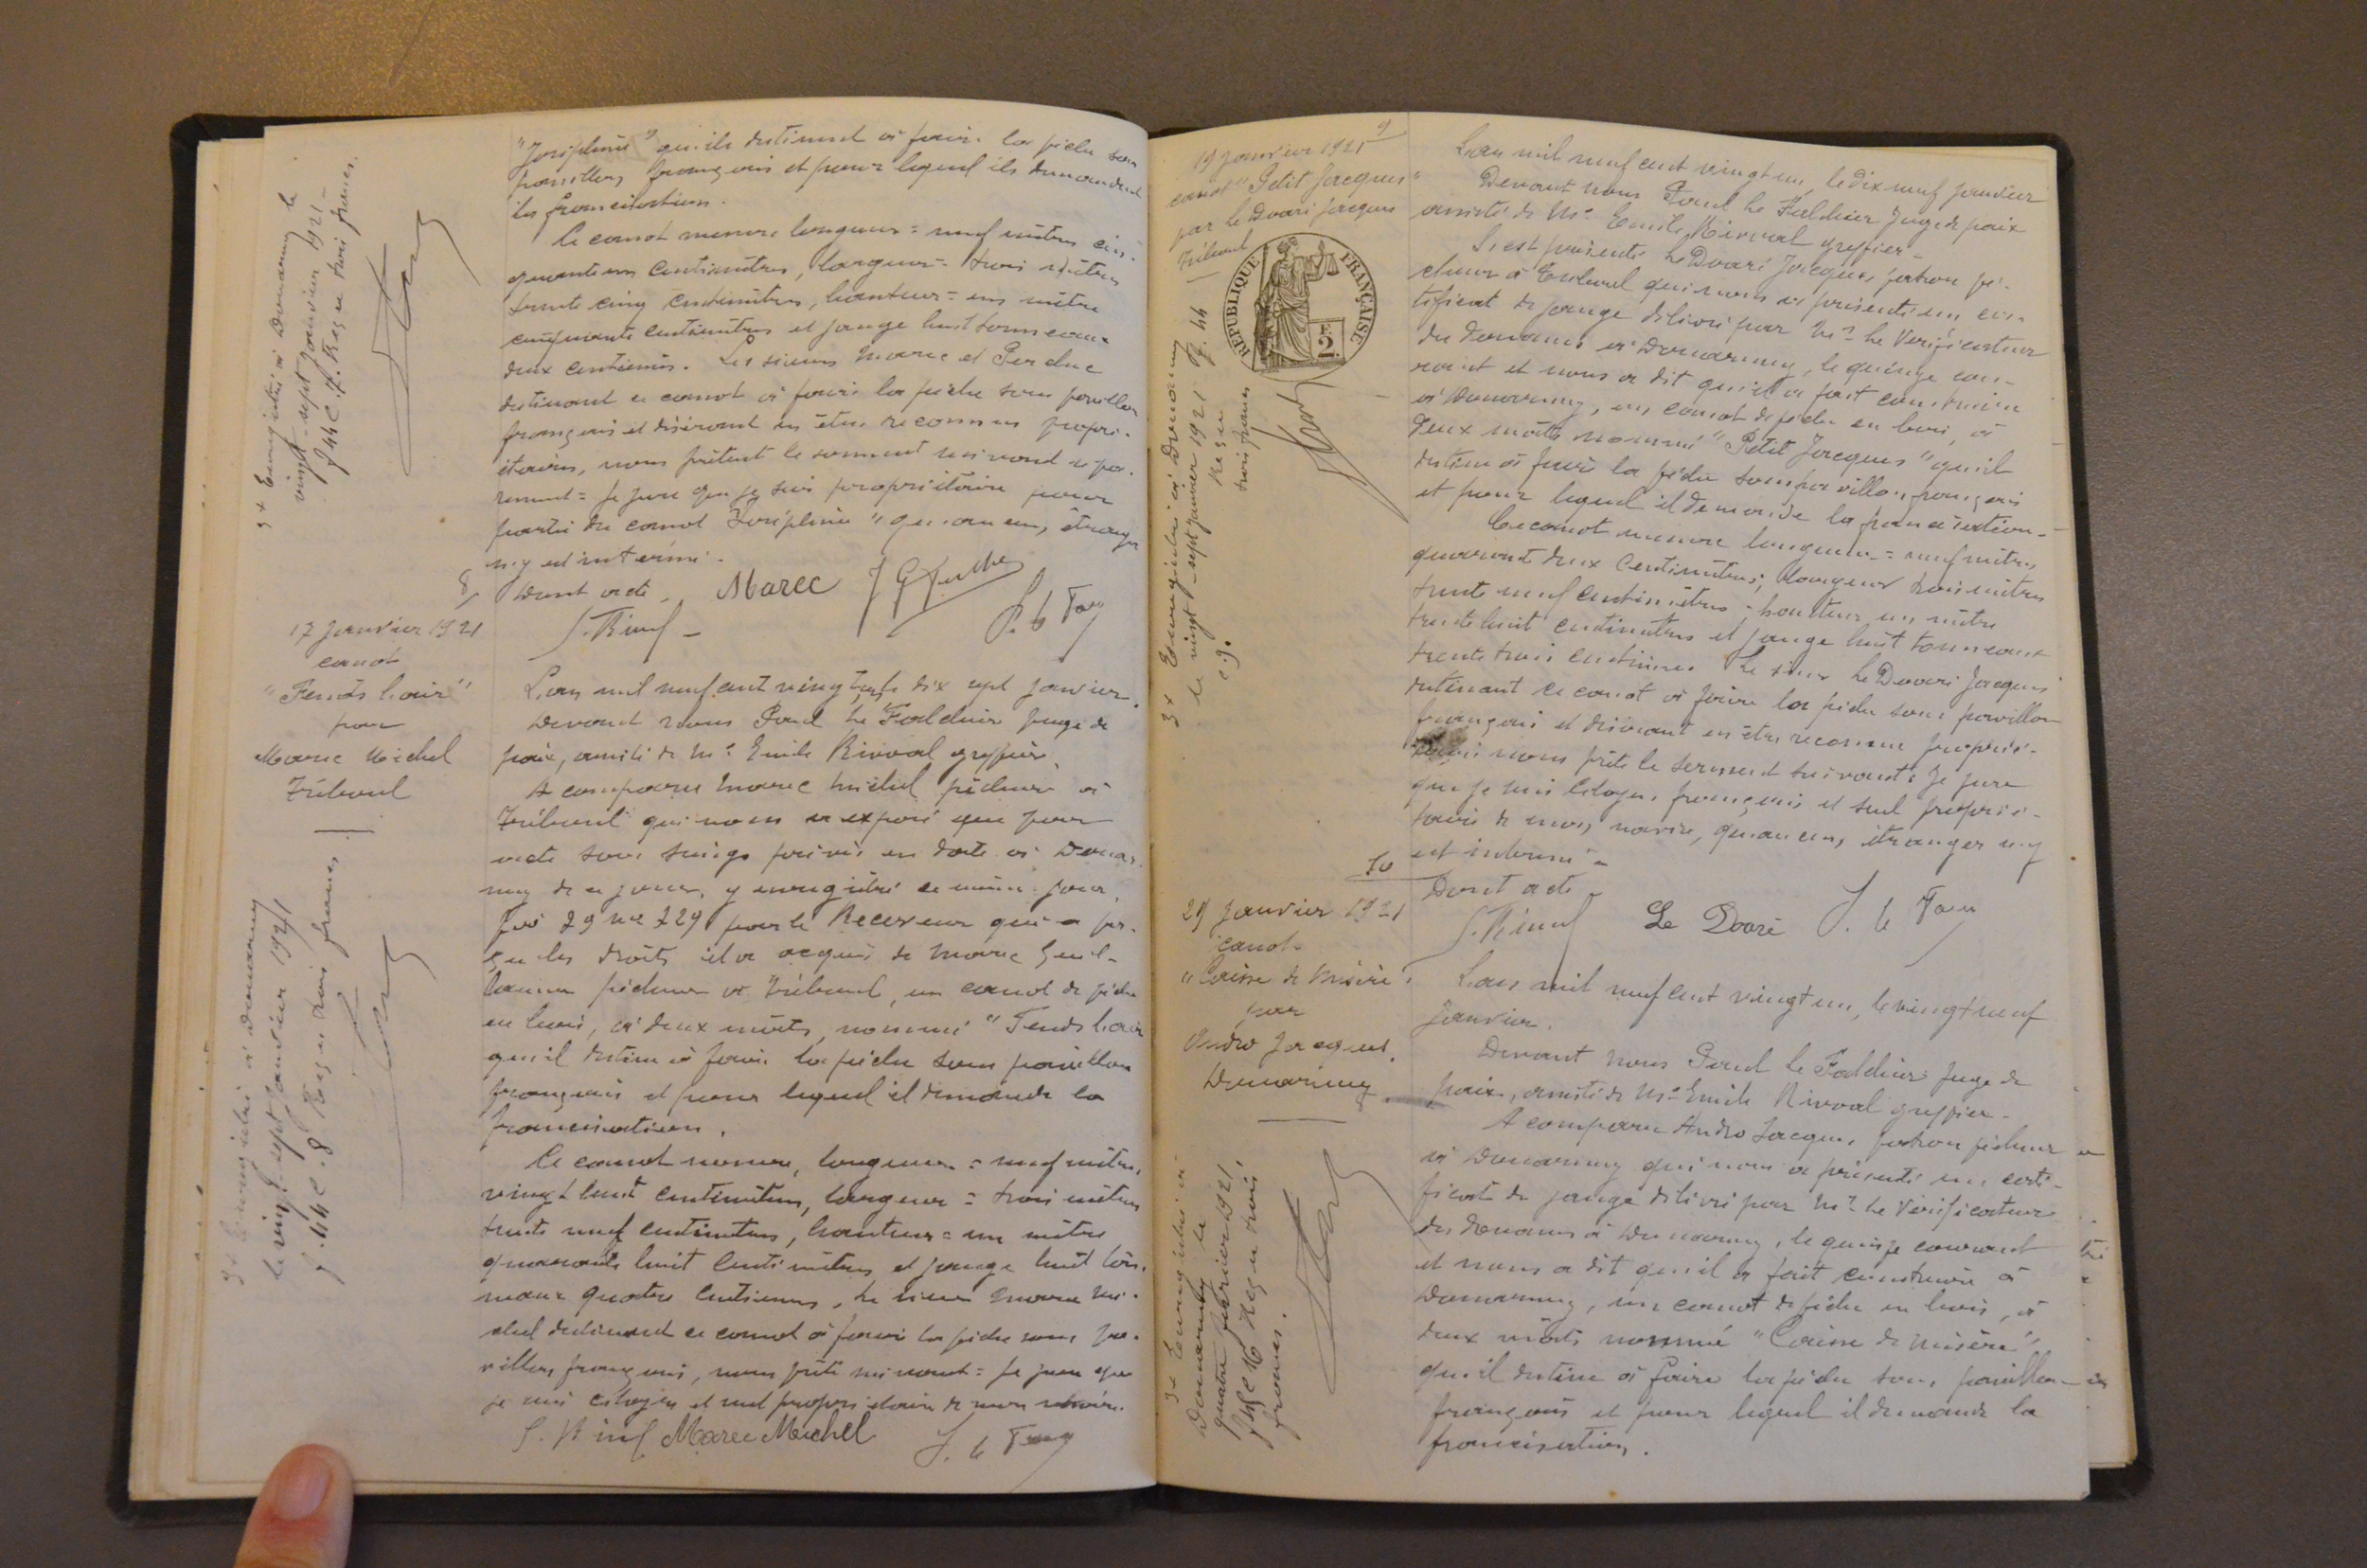 "Joséphine" qu'ils destinent à faire la pêche sous
pavillon français et pour lequel ils demandent
la francisation.
Ce canot mesure longueur = neuf mètres cin-
quante un centimètres, largeur = trois mètres
trente cinq centimètres, hauteur = un mètre
cinquante centimètres et jauge huit tonneaux
deux centièmes. Les sieurs Marec et
destinant ce canot à faire la pêche sous pavillon
français et désirant en être reconnus propri-
étaires, nous prêtent le serment suivant sépa-
rément = Je jure que je suis propriétaire pour
partie du canot Joséphine "qu'aucun étranger
n'y est intéressé.
Dont acte. Marec
3x Enregistré à Douarnenez le
vingt-sept janvier 1921 -
f. 44 c. 7. Reçu trois francs.
8
17 Janvier 1921
canot
"Fends l'air"
par
Marec Michel
Tréboul
L'an mil neuf cent vingt un, le dix sept janvier.
Devant nous Paul Le Falchier Juge de
paix, assisté de Me Emile Rivoal greffier.
A comparu Marec Michel pêcheur à
Tréboul qui nous a exposé que par
acte sous seings privés en date à Douar-
nenez de ce jour, y enregistré ce même jour,
fo 29 no 229 par le Receveur qui a per-
çu les droits il a acquis de Marec Guil-
laume pêcheur à Tréboul, un canot de pêche
en bois, à deux mâts, nommé "Fends l'air
qu'il destine à faire la pêche sous pavillon
français et pour lequel il demande la
francisation.
Ce canot mesure, longueur = neuf mètres,
vingt huit centimètres, largeur = trois mètres
trente neuf centimètres, hauteur = un mètre
quarante huit centimètres et jauge huit ton-
neaux quatre centièmes, Le sieur Marec Mi-
chel destinant ce canot à faire la pêche sous pa-
villon français, nous prête suivant = Je jure que
je suis citoyen et seul propriétaire de mon navire.
Marec Michel
3x Enregistré à Douarnenez
le vingt-sept janvier 1921
f. 44 c. 8 Reçu trois francs.
9
19 Janvier 1921
canot "Petit Jacques"
par Le Doaré Jacques
Tréboul
REPUBLIQUE FRANÇAISE
F.
2.
3x Enregistré à Douarnenez
le vingt-sept janvier 1921 f. 44
c. 9. Reçu
trois francs
L'an mil neuf cent vingt un, le dix neuf janvier
Devant nous Paul Le Falchier Juge de paix
assisté de Me Emile Rivoal greffier -
S'est présenté Le Doaré Jacques, patron pê-
cheur à Tréboul qui nous a présenté un cer-
tificat de jauge délivré par Mr Le Vérificateur
des Douanes à Douarnenez, le quinze cou-
rant et nous a dit qu'il a fait construire
à Douarnenez, un canot de pêche en bois, à
deux mâts nommé "Petit Jacques" qu'il
destine à faire la pêche sous pavillon français
et pour lequel il demande la francisation -
Ce canot mesure longueur = neuf mètres
quarante deux centimètres; largeur trois mètres
trente neuf centimètres - hauteur un mètre
trente huit centimètres et jauge huit tonneaux
trente trois centièmes Le sieur Le Doaré Jacques
destinant ce canot à faire la pêche sous pavillon
français et désirant en être reconnu proprié-
taire nous prête le serment suivant: Je jure
que je suis citoyen français et seul proprié-
taire de mon navire, qu'aucun étranger n'y
est intéressé -
Dont acte -
Le Doaré
10
29 Janvier 1921
canot
"Caisse de Misère"
par
Andro Jacques.
Douarnenez.
3x Enregistré à
Douarnenez le
quatre février 1921,
f 45 c 16 Reçu trois
francs.
L'an mil neuf cent vingt un, le vingt neuf
Janvier.
Devant nous Paul le Falchier Juge de
paix, assisté de Me Emile Rivoal greffier -
A comparu Andro Jacques, patron pêcheur
à Douarnenez qui nous a présenté un certi-
ficat de jauge délivré par Mr Le Vérificateur
des Douanes à Douarnenez, le quinze courant
et nous a dit qu'il a fait construire à
Douarnenez, un canot de pêche en bois, à
deux mâts nommé "Caisse de Misère"
qu'il destine à faire la pêche sous pavillon
français et pour lequel il demande la
francisation.